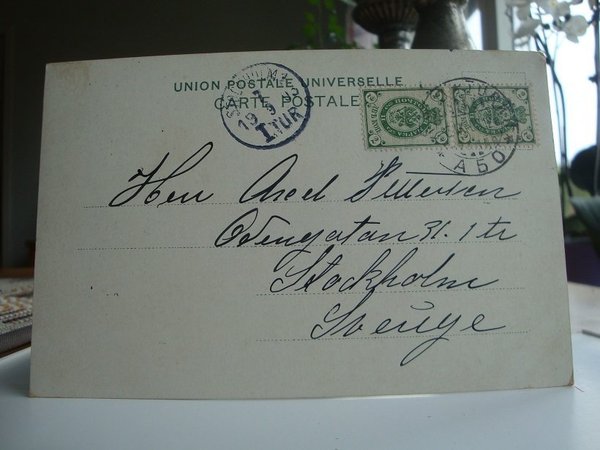 UNION POSTALE UNIVERSELLE
CARTE POSTALE
STOCKHOLM
19 9 03
1 TUR
АБО
Herr Axel Pettersson
Odengatan 31. 1 tr
Stockholm
Sverige